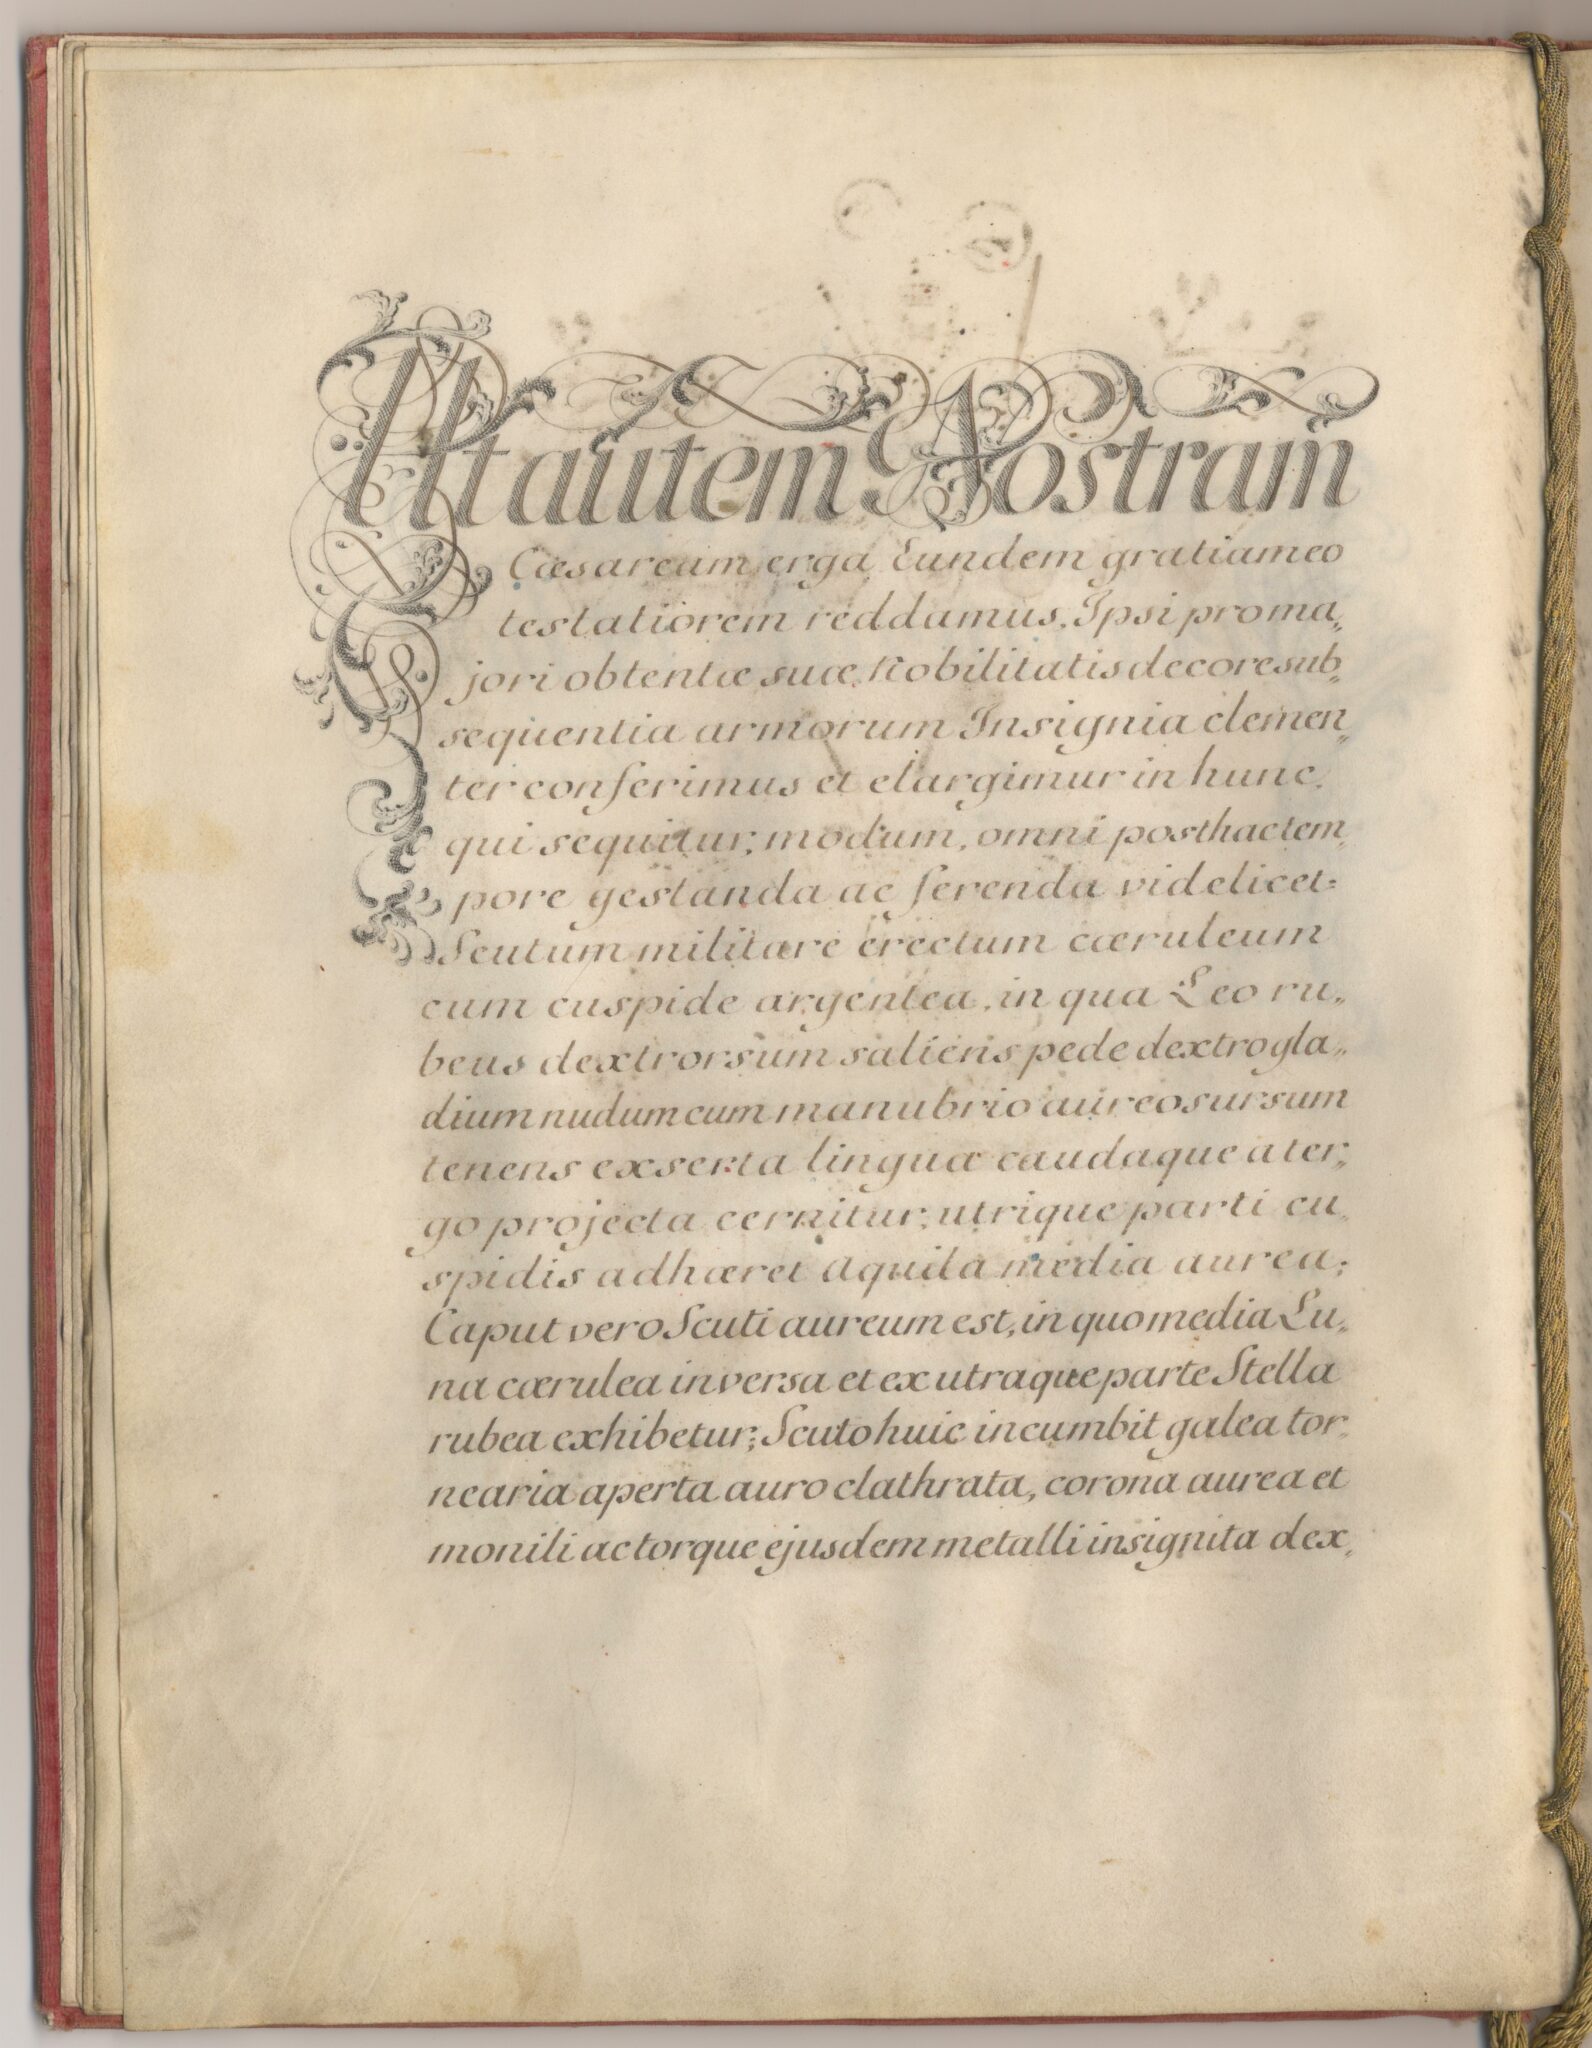 Ut autem Nostram
Cæsaream erga Eundem gratiam eo
testatiorem reddamus, Ipsi pro ma„
jori obtentæ suæ Nobilitatis decore sub„
sequentia armorum Insignia clemen„
ter conferimus et elargimur in hunc,
qui sequitur, modum, omni posthac tem„
pore gestanda ac ferenda videlicet:
Scutum militare erectum cæruleum
cum cuspide argentea, in qua Leo ru„
beus dextrorsum saliens pede dextro gla„
dium nudum cum manubrio aureo sursum
tenens exserta lingua caudaque a ter„
go projecta cernitur, utrique parti cu„
spidis adhæret aquila media aurea;
Caput vero Scuti aureum est, in quo media Lu„
na cærulea inversa et ex utraque parte Stella
rubea exhibetur; Scuto huic incumbit galea tor„
nearia aperta auro clathrata, corona aurea et
monili ac torque ejusdem metalli insignita dex„